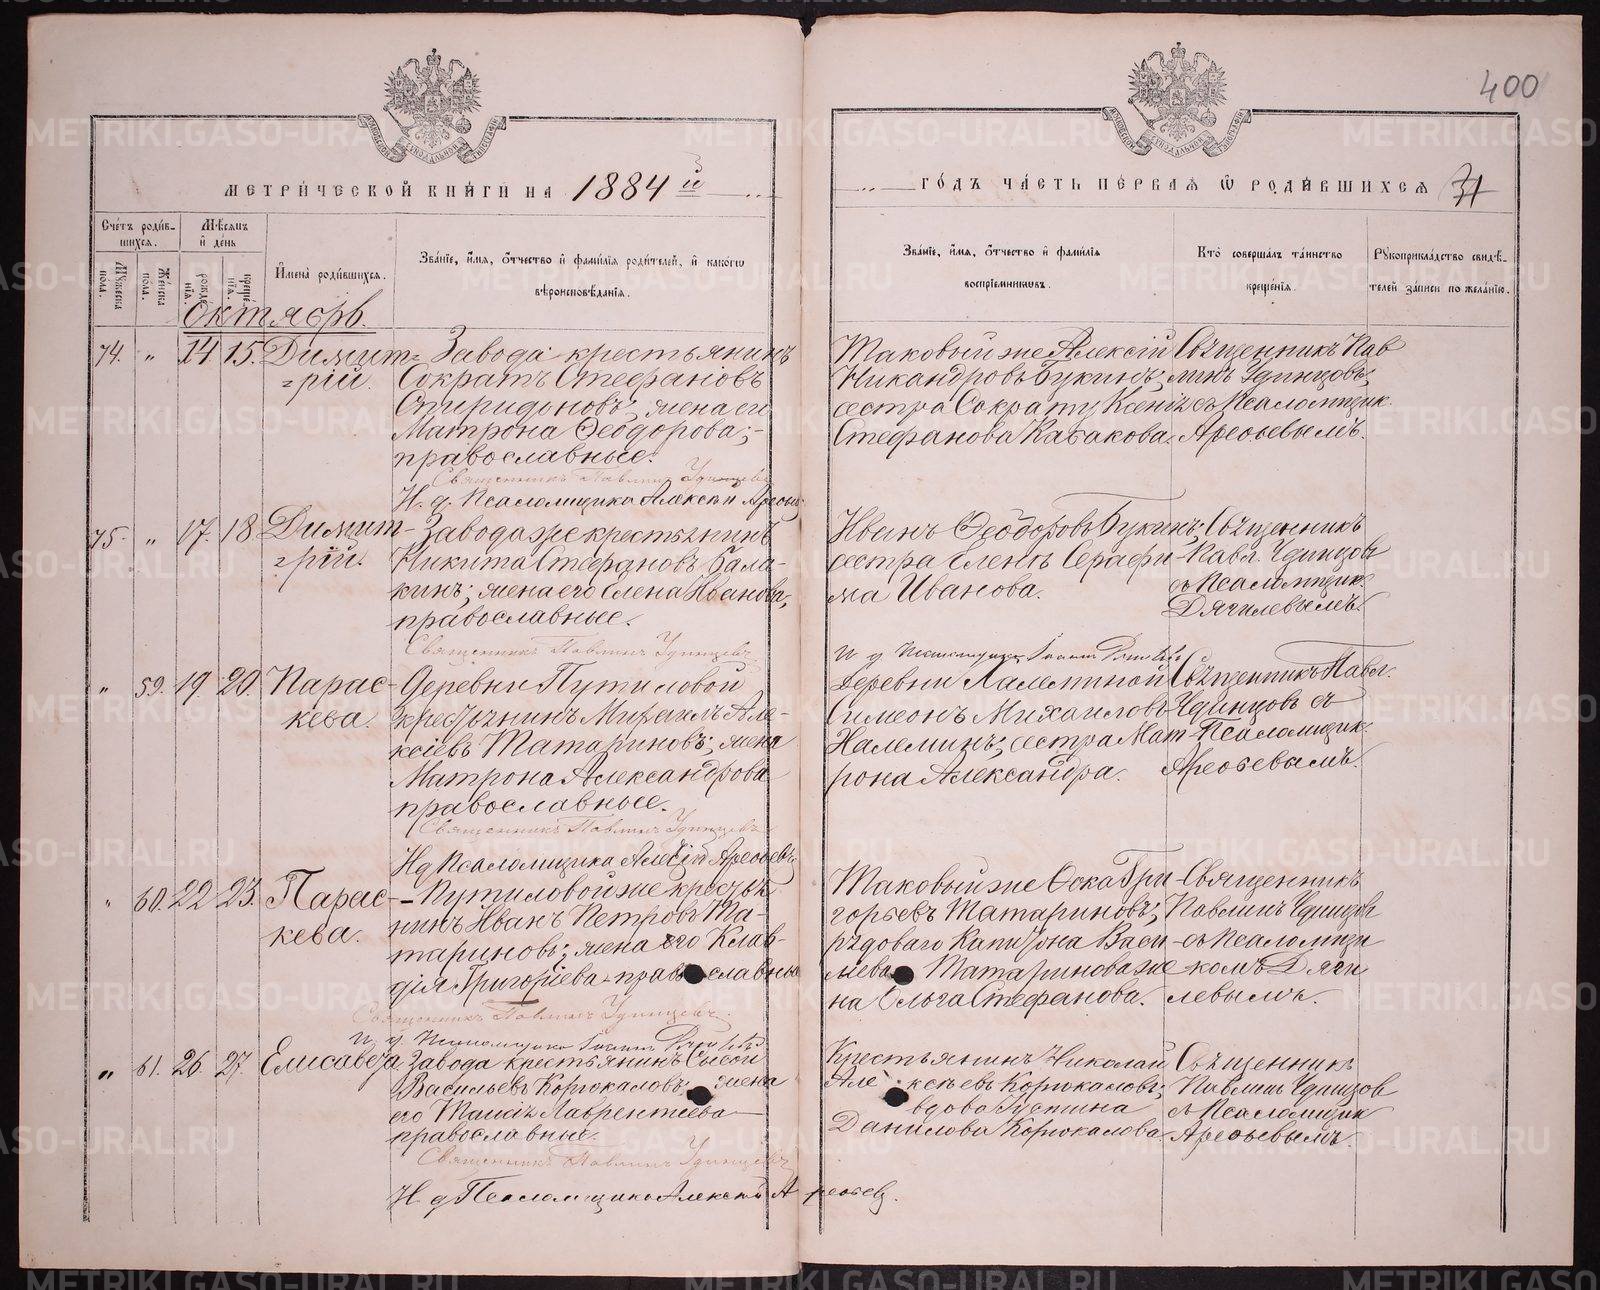 400
МЕТРИ́ЧЕСКОЙ КНИ́ГИ НА 1884 й
ГО́ДЪ ЧА́СТЬ ПЕ́РВАЯ Ѽ РОДИ́ВШИХСЯ 31
Сче́тъ роди́в-
шихся.
Мѣ́сяцъ
и҆ де́нь
Мꙋжеска
пола.
Же́нска
пола.
рожде́
нїѧ.
креще́
нїѧ.
И҆мена̀ роди́вшихся.
Зва́нїе, и҆́мѧ, ѻ҆́тчество и҆ фамѝлїѧ роди́телей, и҆ како́гѡ
вѣроисповѣ́данїѧ.
Зва́нїе, и҆́мѧ, ѻ҆́тчество и҆ фамѝлїѧ
воспрїе́мникѡвъ.
Кто̀ соверша́лъ та́инство
креще́нїѧ.
Рꙋкоприкла́дство свидѣ́-
телей за́писи по жела́нїю.
Октябрь.
74. „ 14 15. Димит=
=рій.
Завода крестьянинъ
Сократъ Стефановъ
Спиридоновъ; жена его
Матрона Ѳеодорова;-
православные.
Священникъ Павлинъ Удинцевъ
И. д. Псаломщика Алексѣй Арефьевъ
Таковый же Алексій
Никандровъ Букинъ;
сестра Сократу Ксенія
Стефанова Кабакова.
Священникъ Пав
линъ Удинцовъ
съ Псаломщик.
Арефьевымъ.
75. „ 17. 18. Димит-
=рій.
Завода же крестьянинъ
Никита Стефановъ Бала-
кинъ; жена его Елена Иванова,
православные.
Священникъ Павлинъ Удинцевъ
Иванъ Ѳеодоровъ Букинъ;
сестра Еленѣ Серафи-
ма Иванова.
Священникъ
Павл. Удинцовъ
съ Псаломщик.
Дягилевымъ.
И д Псаломщика Іоаннъ
„ 59. 19. 20. Парас-
кева.
Деревни Путиловой
крестьянинъ Михаилъ Але-
ксіевъ Татариновъ; жена
Матрона Александрова
православные.
Священникъ Павлинъ Удинцевъ
Ид Псаломщика Алексій Арефьевъ
Деревни
Симеонъ Михаиловъ
сестра Мат-
рона Александра.
Священникъ Павл.
Удинцовъ съ
Псаломщик.
Арефьевымъ.
„ 60. 22 23. Парас-
кева.
Путиловой же крестья
нинъ Иванъ Петровъ Та-
тариновъ; жена его Клав-
дія Григоріева православные
Священникъ Павлинъ Удинцевъ.
И д Псаломщика Іоаннъ
Таковый же Фока Гри-
горьевъ Татариновъ;
рядоваго Капитона Васи-
льева Татаринова же-
на Ольга Стефанова.
Священникъ
Павлинъ Удинцовъ
съ псаломщи
комъ Дяги
левымъ.
„ 61. 26. 27. Елисавета
Завода крестьянинъ Сысой
Васильевъ Корюкаловъ; жена
его Таисія Лаврентіева
православные.
Священникъ Павлинъ Удинцевъ
И д Псаломщика Алексѣй Арефьевъ.
Крестьянинъ Николай
Алексѣевъ Корюкаловъ;
вдова Іустина
Данилова Корюкалова
Священникъ
Павлинъ Удинцов
съ Псаломщик
Арефьевымъ.
METRIKI.GASO-URAL.RU